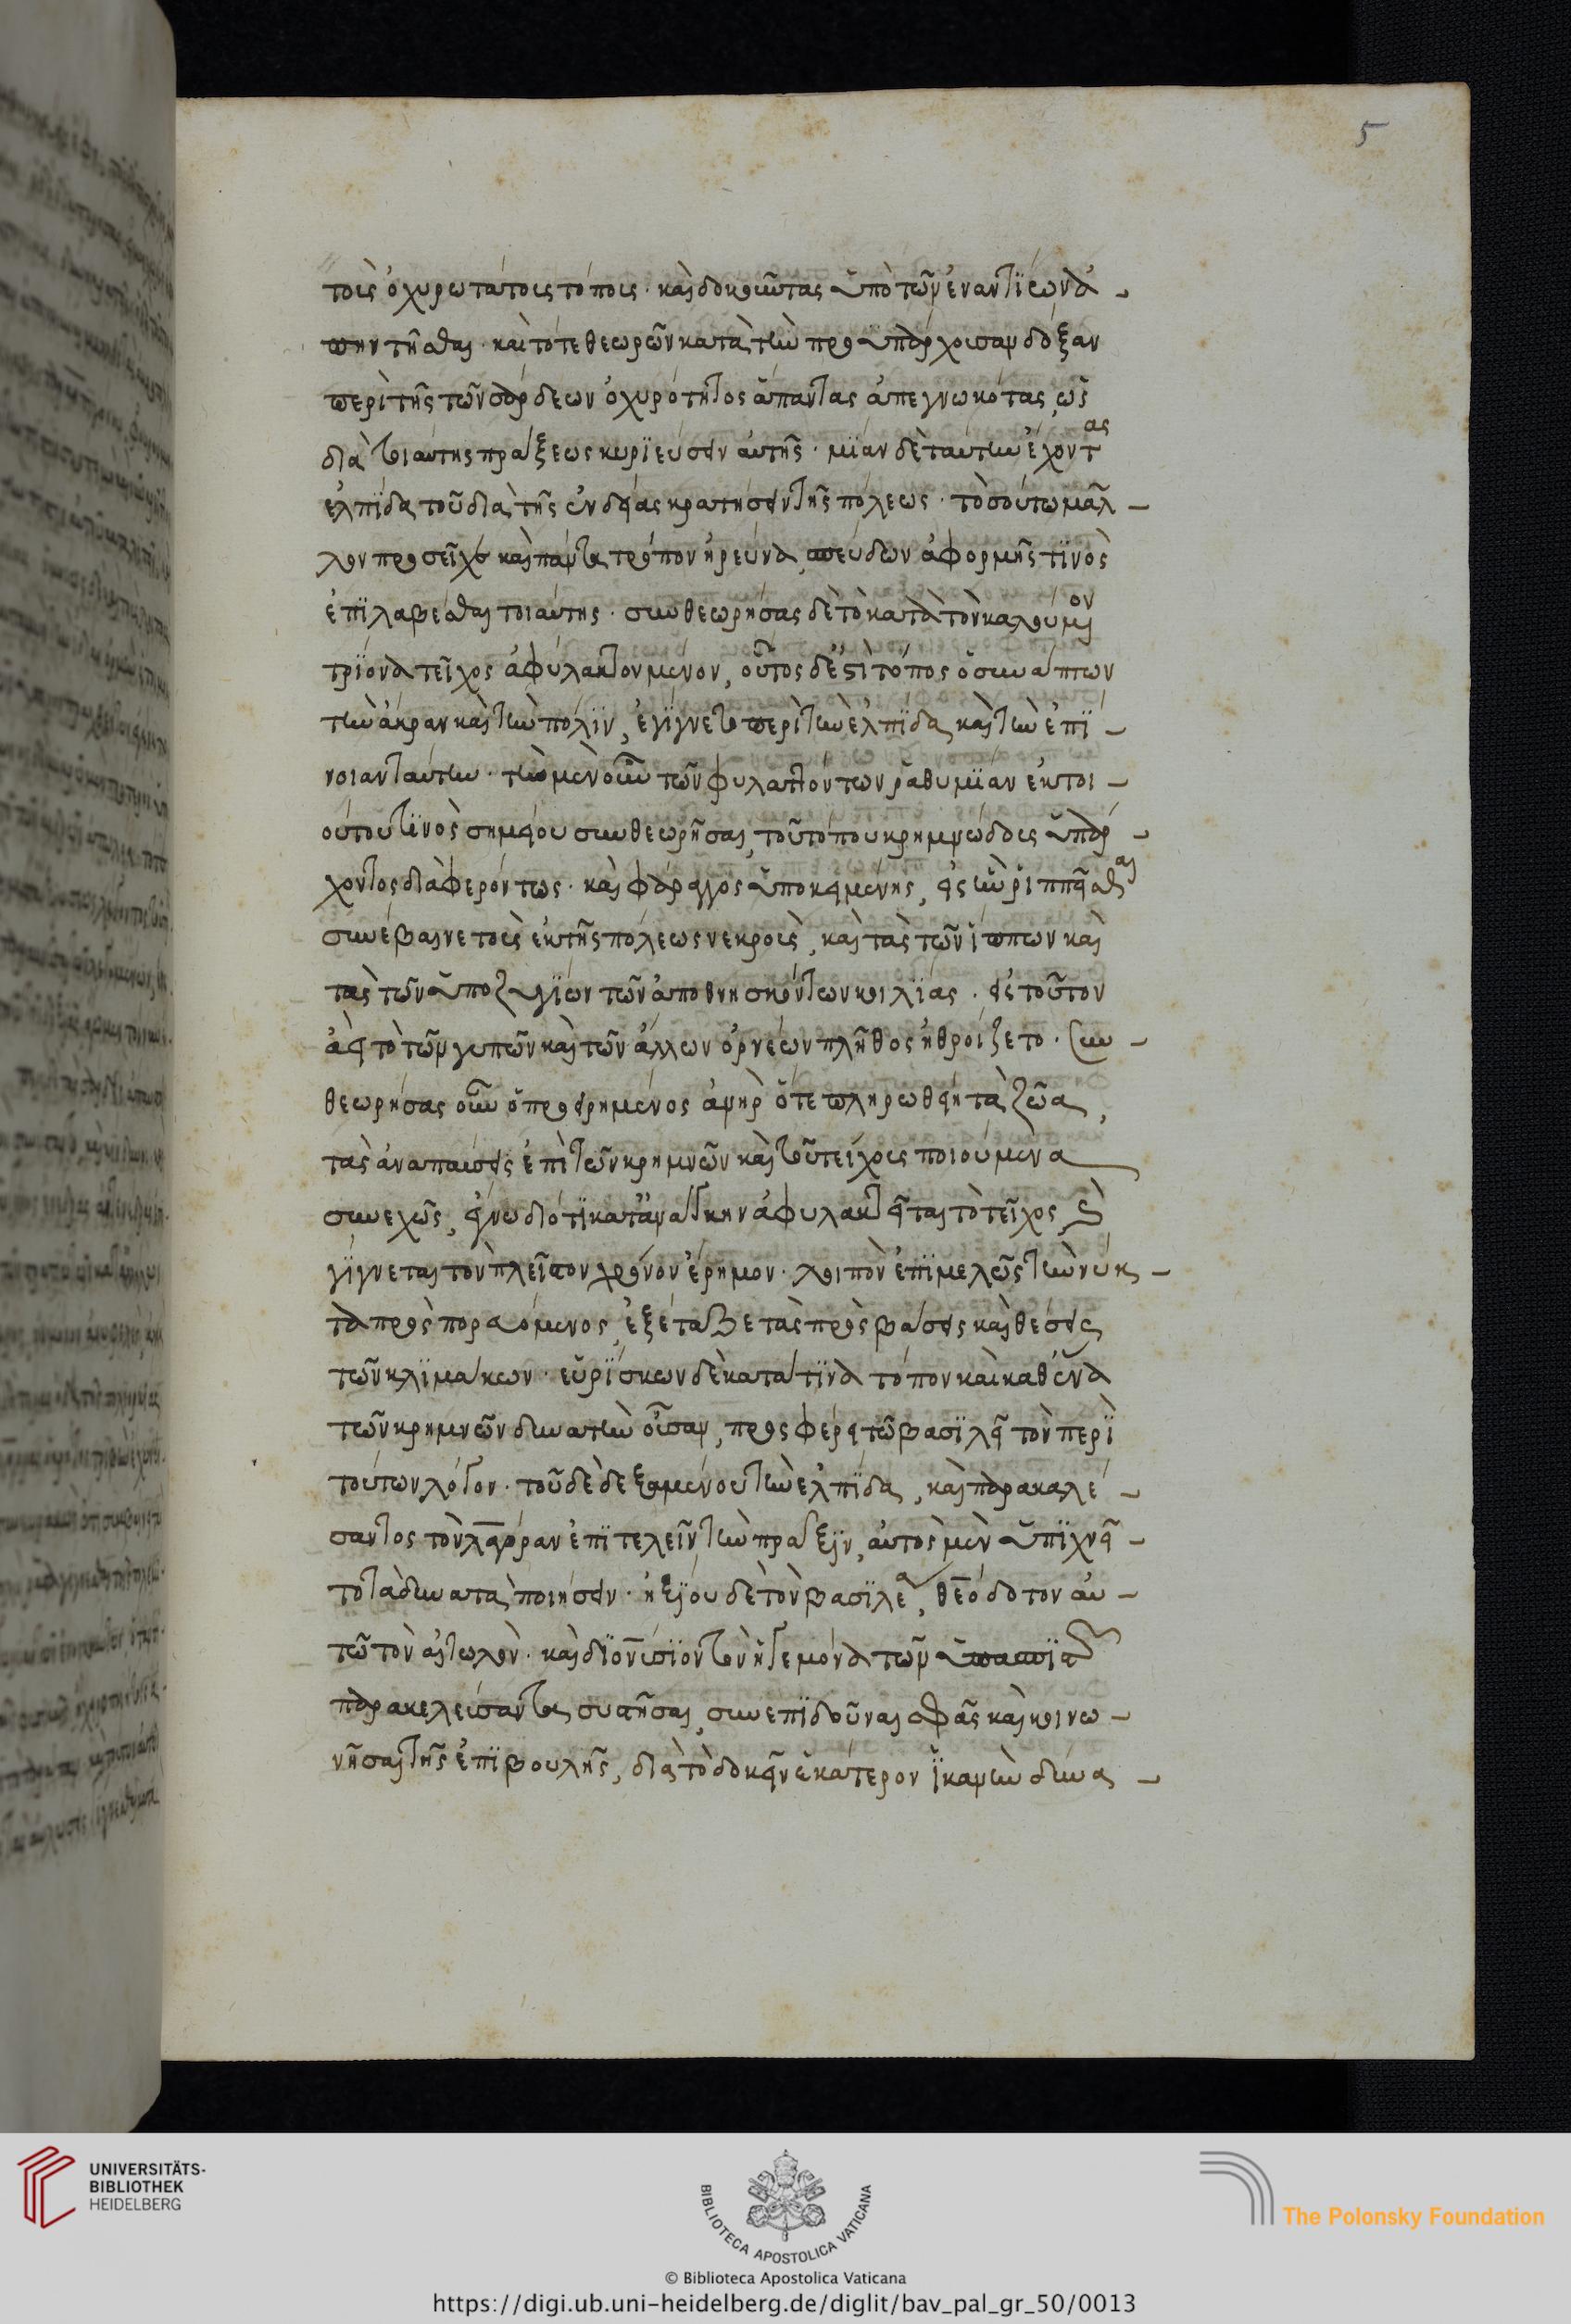 5
τοῖς ὀχυρωτάτοις τόποις· καὶ δοκοῦντας ὑπὸ τῶν ἐναντίων ἀ-
πηντῆσθαι· καὶ τότε θεωρῶν κατὰ τὴν προϋπάρχουσαν δόξαν
περὶ τῆς τῶν σάρδεων ὀχυρότητος ἅπαντας ἀπεγνωκότας, ὡς
διὰ τοιαύτης πράξεως κυριεύσειν αὐτῆς· μίαν δὲ ταύτην ἔχοντας
ἐλπίδα τοῦ διὰ τῆς ἐνδείας κρατήσειν τῆς πόλεως· τοσούτω μᾶλ-
λον προσεῖχε καὶ πάντα τρόπον ἠρεύνα, σπεύδων ἀφορμῆς τινὸς
ἐπιλαβέσθαι τοιαύτης· συνθεωρήσας δὲ τὸ κατὰ τὸν καλούμενον
πρίονα τεῖχος ἀφύλακτον μένον, οὗτος δ' ἔστι τόπος ὁ συνάπτων
τὴν ἄκραν καὶ τὴν πόλιν, ἐγίγνετο περὶ τὴν ἐλπίδα καὶ τὴν ἐπί-
νοιαν ταύτην· τὴν μὲν οὖν τῶν φυλαττόντων ῥαθυμίαν ἐκ τοι-
ούτου τινὸς σημείου συνθεωρῆσαι, τοῦ τόπου κρημνώδους ὑπάρ-
χοντος διαφερόντως· καὶ φάραγγος ὑποκειμένης, εἰς ἣν ῥιπτεῖσθαι
συνέβαινε τοῖς ἐκ τῆς πόλεως νεκροῖς, καὶ τὰς τῶν ἵππων καὶ
τὰς τῶν ὑποζυγίων τῶν ἀποθνησκόντων κοιλίας· εἰς τοῦτον
ἀεὶ τὸ τῶν γυπῶν καὶ τῶν ἄλλων ὀρνέων πλῆθος ἠθροίζετο· συν-
θεωρήσας οὖν ὁ προειρημένος ἀνὴρ ὅτε πληρωθείη τὰ ζῶα,
τὰς ἀναπαύσεις ἐπὶ τῶν κρημνῶν καὶ τοῦ τείχους ποιούμενα
συνεχῶς, ἔγνω διότι κατ' ἀνάγκην ἀφυλακτεῖται τὸ τεῖχος, καὶ
γίγνεται τὸν πλεῖστον χρόνον ἔρημον· λοιπὸν ἐπιμελῶς τὴν νύκ-
τα προσπορευόμενος, ἐξέταζε τὰς προσβάσεις καὶ θέσεις
τῶν κλιμάκων· εὑρίσκων δὲ κατά τινα τόπον καὶ καθ' ἕνα
τῶν κρημνῶν δυνατὴν οὖσαν, προσφέρει τῶ βασιλεῖ τὸν περὶ
τούτων λόγον· τοῦ δὲ δεξαμένου τὴν ἐλπίδα, καὶ παρακαλέ-
σαντος τὸν λαγόραν ἐπιτελεῖν τὴν πρᾶξιν, αὐτὸς μὲν ὑπισχνεῖ-
το τὰ δυνατὰ ποιήσειν· ἠξίου δὲ τὸν βασιλέα, θεόδοτον αὐ-
τῶ τὸν αἰτωλὸν· καὶ διονύσιον τὸν ἡγεμόνα τῶν ὑπασπιστῶν
παρακελεύσαντα συστῆσαι, συνεπιδοῦναι σφᾶς καὶ κοινω-
νῆσαι τῆς ἐπιβουλῆς, διὰ τὸ δοκεῖν ἑκάτερον ἱκανὴν δύνα-
UNIVERSITÄTS-
BIBLIOTHEK
HEIDELBERG
BIBLIOTECA APOSTOLICA VATICANA
The Polonsky Foundation
© Biblioteca Apostolica Vaticana
https://digi.ub.uni-heidelberg.de/diglit/bav_pal_gr_50/0013